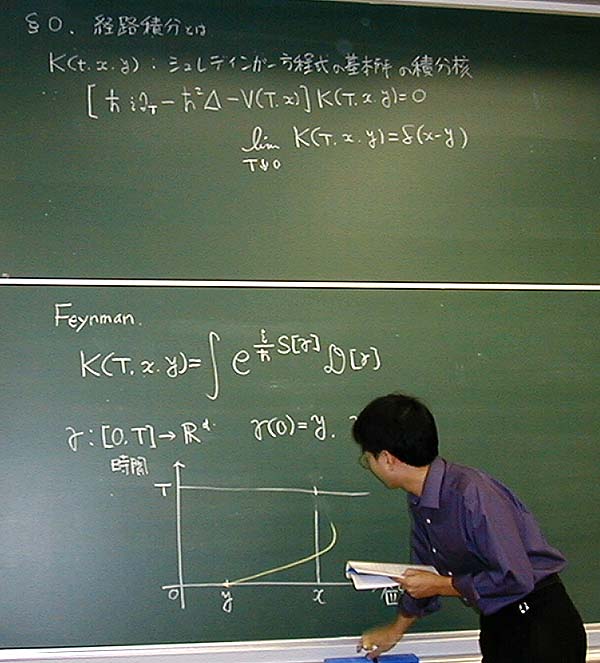 §0. 経路積分とは
K(t.x.y): シュレディンガー方程式の基本解の積分核
[ℏi∂_T-ℏ²Δ-V(T.x)]K(T.x.y)=0
lim_{T↓0} K(T.x.y)=δ(x-y)
Feynman.
K(T.x.y)=∫e^{\frac{i}{ℏ}S[γ]}𝒟[γ]
γ:[0,T]→ℝ^d. γ(0)=y.
時間
T
0 y x 位